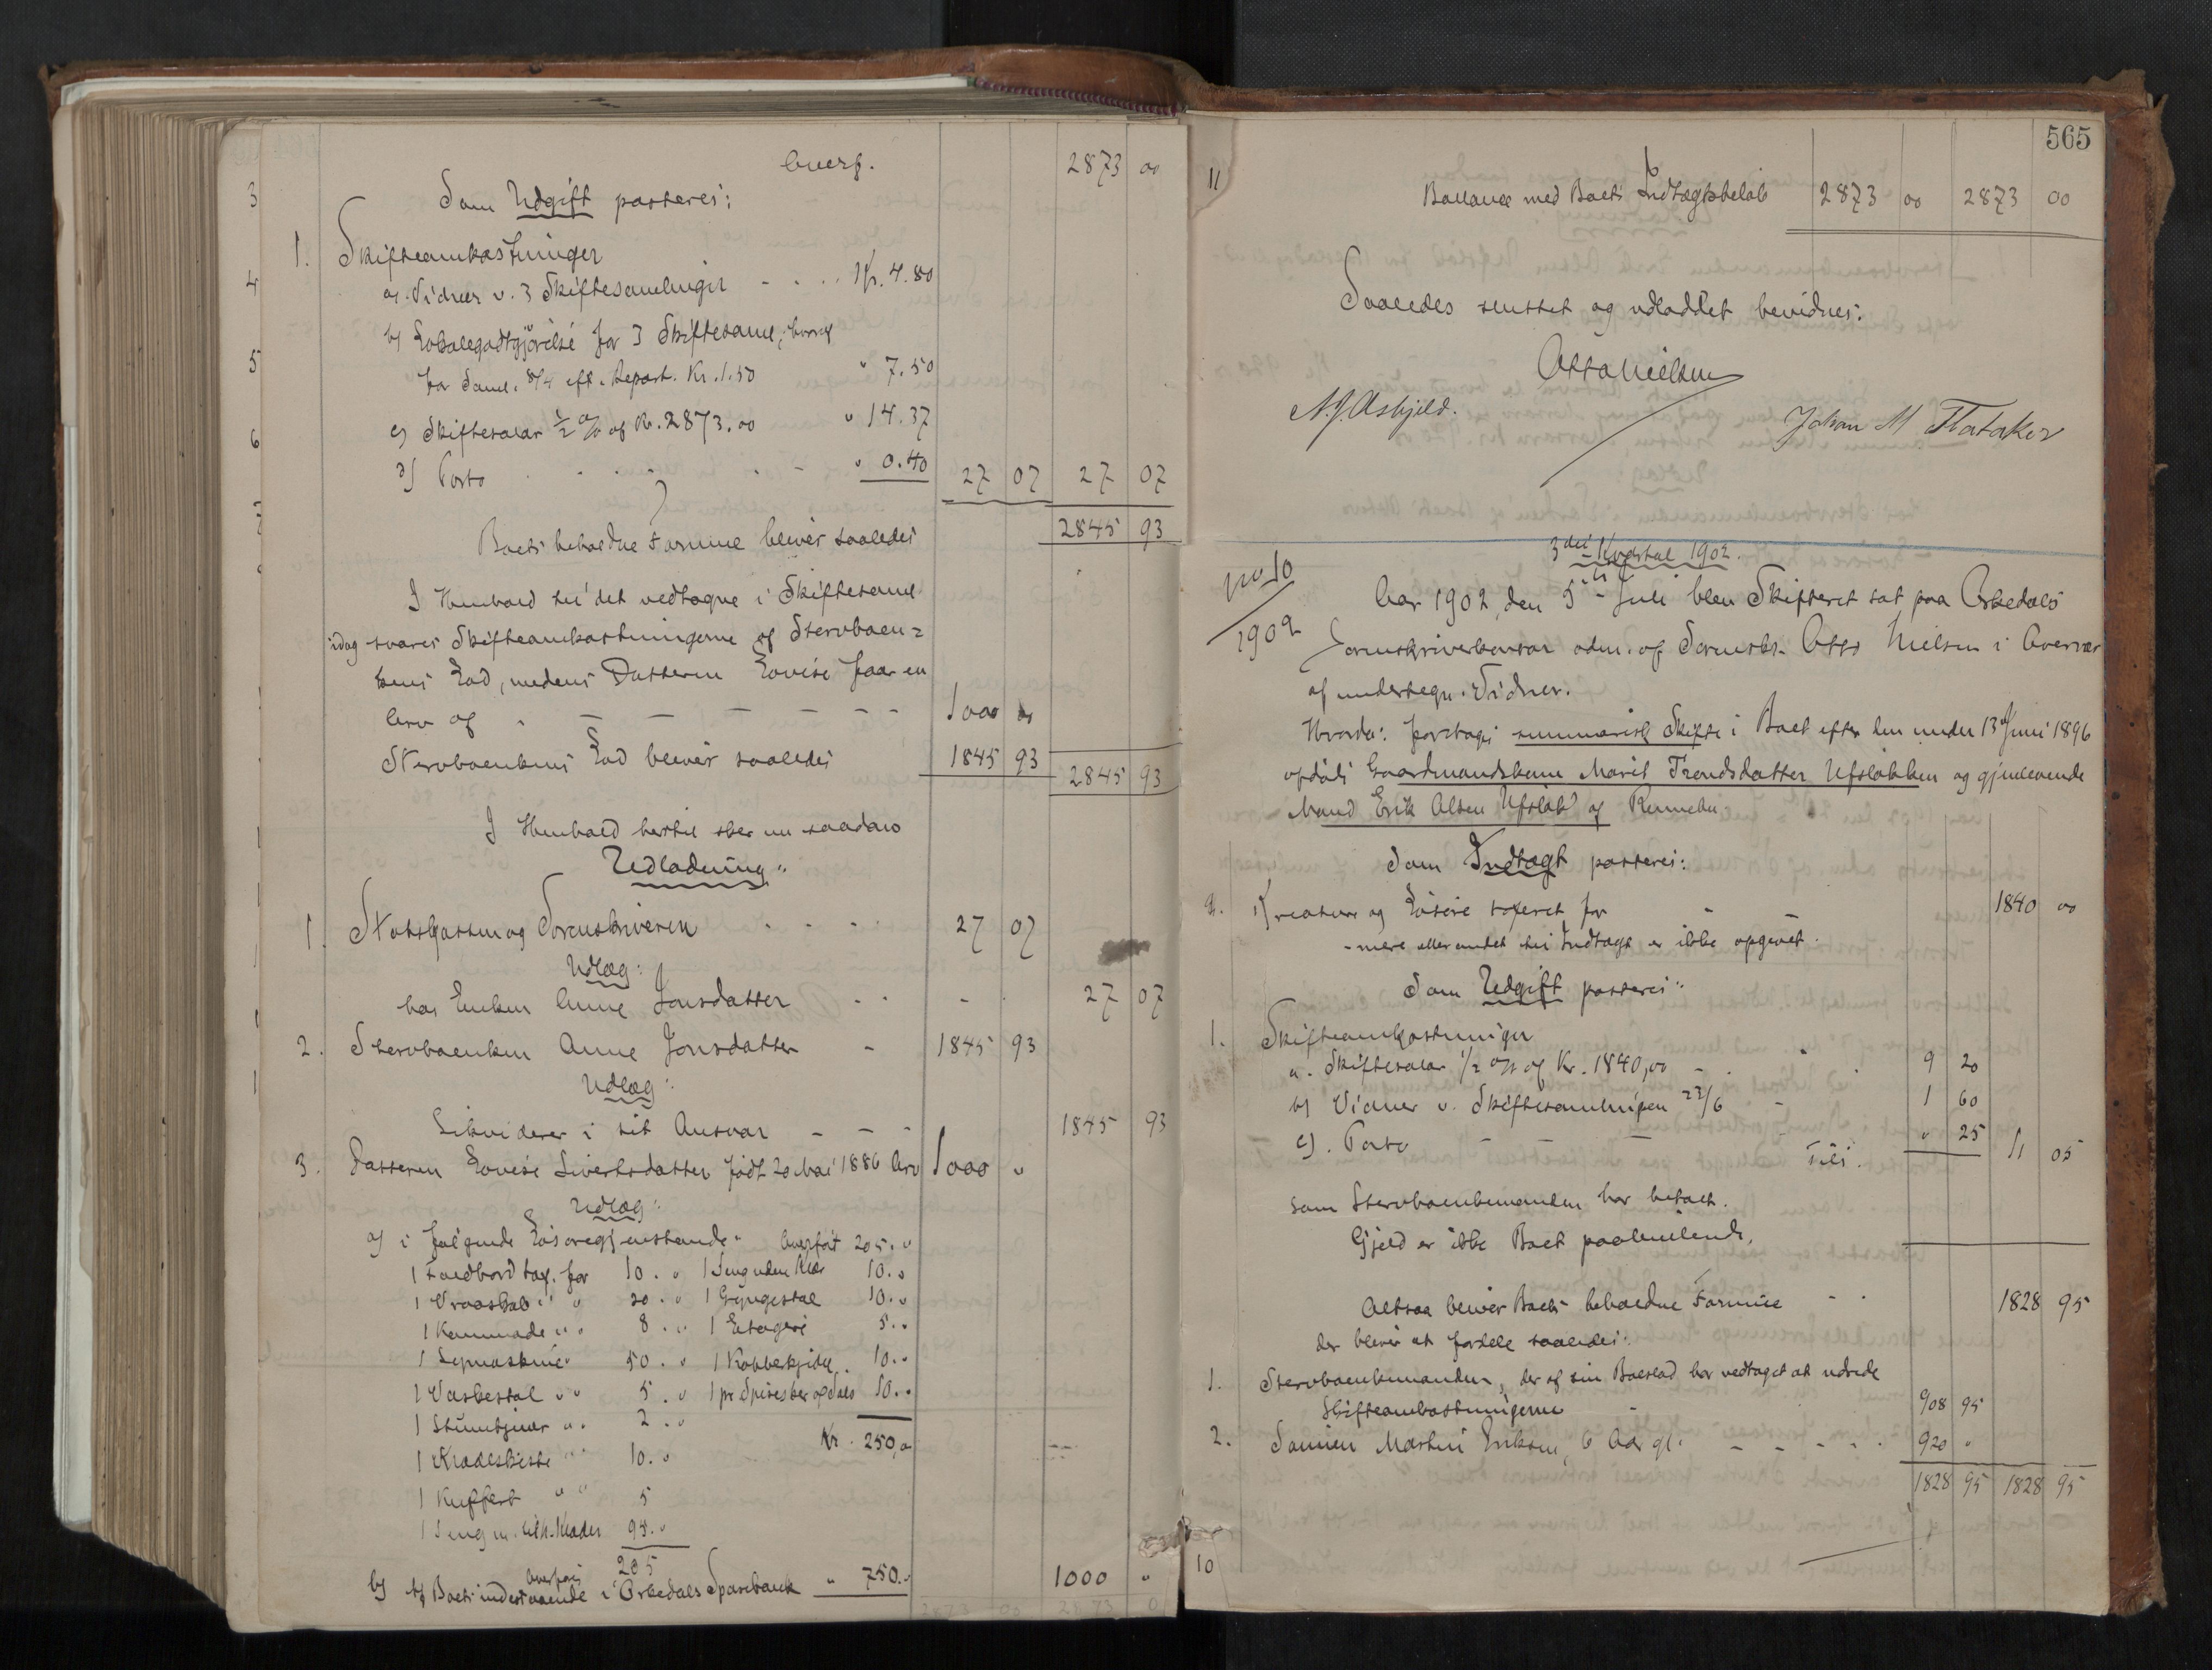 Overf. 2873 00
Som Udgift posteres:
1. Skifteomkostninger
a) Vidner v. 3 Skiftesamlinger - . . Kr. 4.80
b) Lokalegodtgjörelse for 3 Skiftesaml., hvoraf
for Saml. 8/4 eft. Repart. Kr. 1.50 " 7.50
c) Skiftesalær ½ % af Kr. 2873.00 " 14.37
d) Porto . . . . - " 0.40 27 07 27 07
Boets beholdne Formue bliver saaledes 2845 93
I Henhold til det vedtagne i Skiftesaml.
idag svares Skifteomkostningerne af Stervboen=
kens Lod, medens Datteren Lovise faar en
Arv af - - - - - - 1000 00
Stervboenkens Lod bliver saaledes 1845 93 2845 93
I Henhold hertil sker nu saadan
Udlodning:
1. Statskassen og Sorenskriveren . . . 27 07
Udlæg:
hos Enken Anne Jonsdatter . . - . 27 07
2. Stervboenken Anne Jonsdatter - 1845 93
Udlæg:
Likviderer i sit Ansvar - - - 1845 93
3. Datteren Lovise Sivertsdatter født 20 Mai 1886 Arv 1000 "
Udlæg:
a) i følgende Løsøregjenstande: Overført 205. "
1 Foldbord tax. for 10. " 1 Seng uden Klær 10. "
1 Vraaskab " " 20. " 1 Gyngestol 10. "
1 Kommode " " 8. " 1 Etagere 5. "
1 Symaskine " 50. " 1 Kobberkjedel 10. "
1 Vaskestol " " 5. " 1 pr Spiseskeer 10. "
1 " " 2. "
Kr. 250,00
1 Klædeskiste " " 10. "
1 Kuffert " " 5
1 Seng m. tilh. Klæder 95. "
Overføres 205
b) Af Boets indestaaende i Orkedals Sparebank " 750. " 1000 "
2873 00 2873 0
565
11
Ballance med Boets Indtægtsbeløb 2873 00 2873 00
Saaledes sluttet og udloddet bevidnes:
Otto Nielsen
N. J. Asbjeld. Johan M Flataker
3die Kvartal 1902.
No 10
1902
Aar 1902 den 5te Juli blev Skifteret sat paa Orkedals
Sorenskriverkontor adm. af Sorenskr. Otto Nielsen i Overvær
af undertegn. Vidner.
Hvorda: foretoges summarisk Skifte i Boet efter den under 13de Juni 1896
afdöde Gaardmandskone Marit Trondsdatter Ufsløkken og gjenlevende
Mand Erik Olsen Ufsløk af Rennebu.
Som Indtægt posteres:
a. Kreature og Løsøre taxeret for - - 1840 00
- mere eller andet til Indtægt er ikke opgivet.
Som Udgift posteres:
1. Skifteomkostninger
a. Skiftesalær 1/2 % af Kr. 1840,00 - . . 9 20
b) Vidner v. Skiftesamlingen 23/6 - 1 60
c). Porto - - - " 25
Tils. 11 05
som Stervboenkemanden har betalt.
Gjeld er ikke Boet paahvilende.
Altsaa bliver Boets beholdne Formue - - 1828 95
der bliver at fordele saaledes:
1. Stervboenkemanden, der af sin Boeslod har vedtaget at udrede
Skifteomkostningerne - 908 95
2. Sønnen Martin Eriksen, 6 Aar gl. - - - - . 920 "
1828 95 1828 95
10